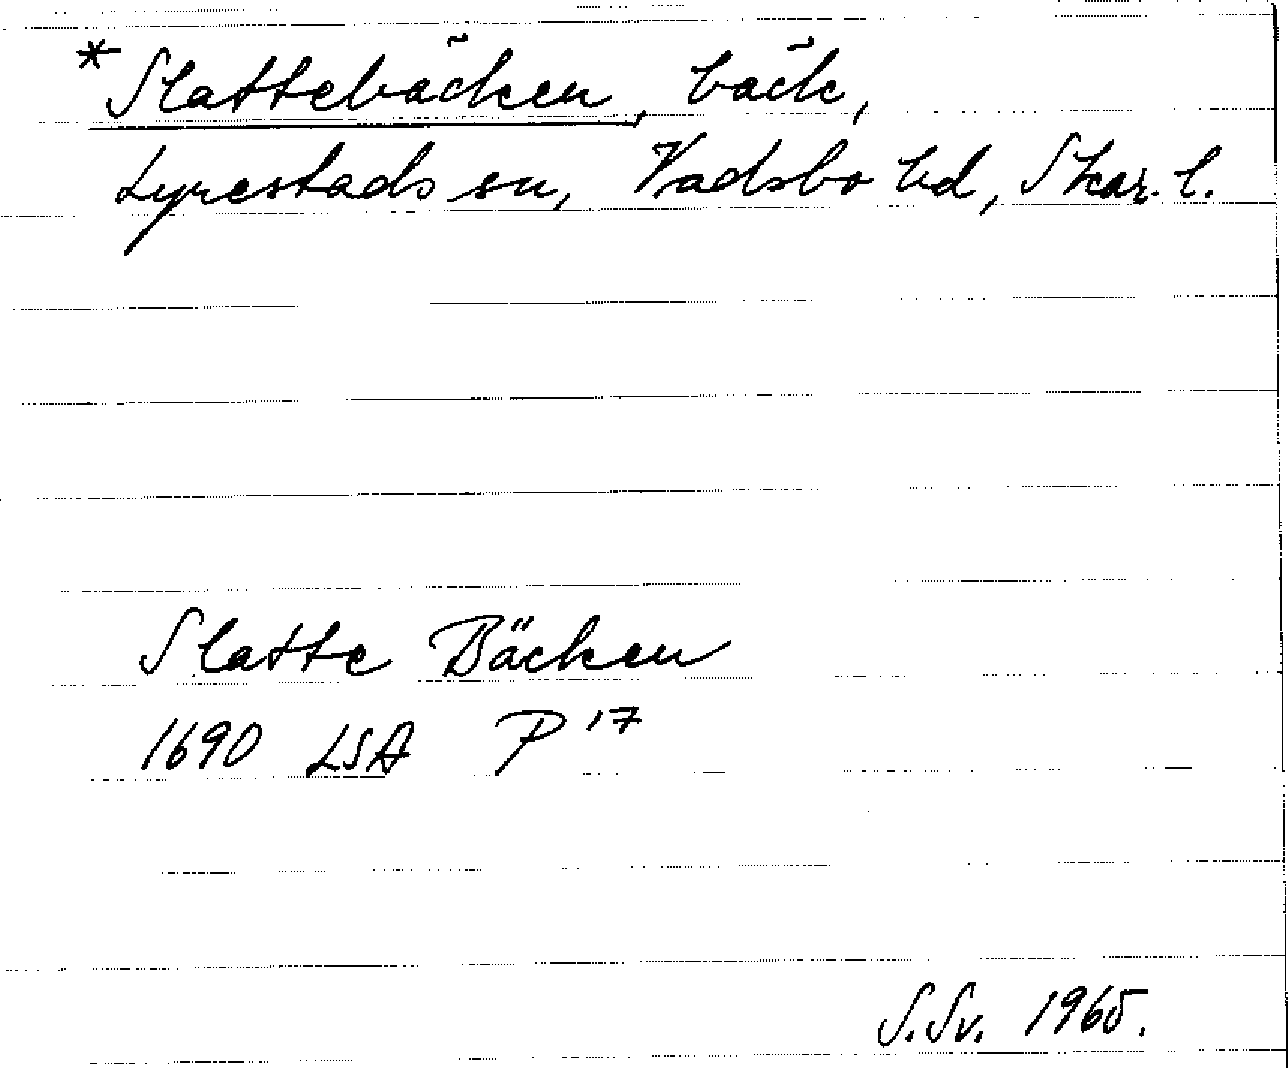 * Slattebäcken, bäck,
Lyrestads sn, Vadsbo hd, Skar. l.
Slatte Bäcken
1690 LSA P 17
S. Sv. 1965.